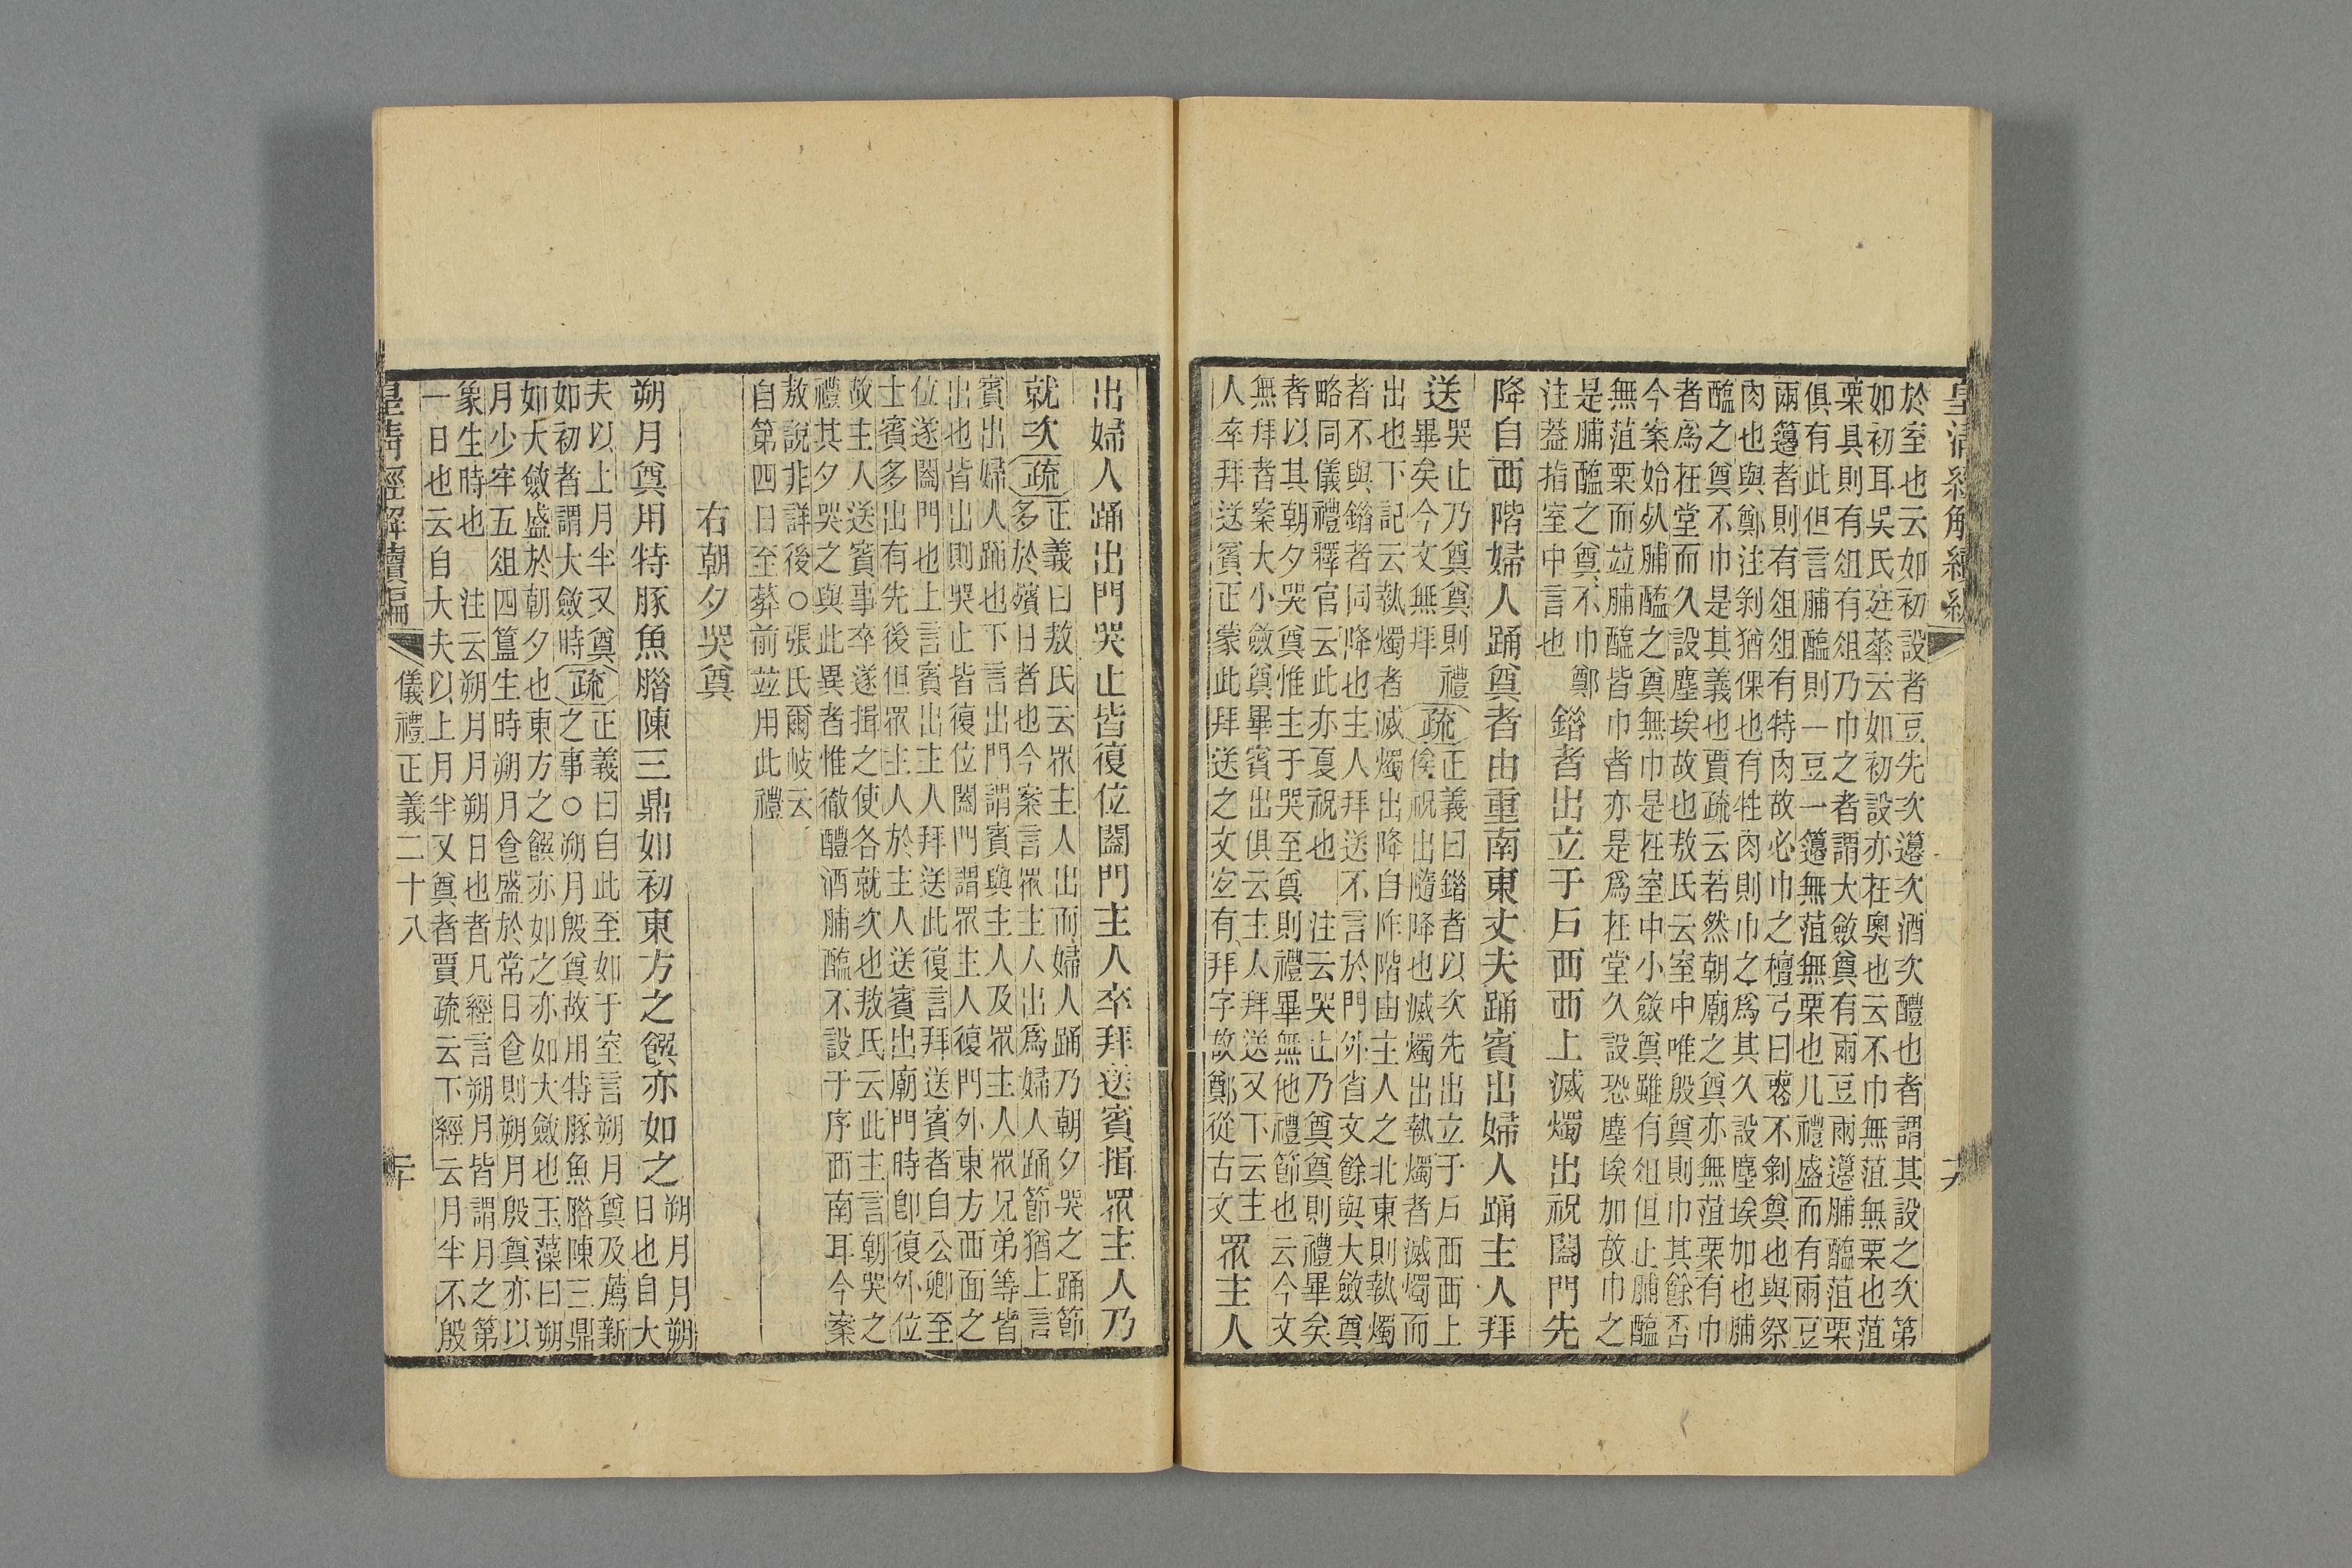 皇清經解續編
於室也云如初設者豆先次籩次酒次醴也者謂其設之次第
如初耳吳氏廷華云如初設亦在奧也云不巾無菹無栗也菹
栗具則有俎有俎乃巾之者謂大斂奠有兩豆兩籩脯醢菹栗
俱有此但言脯醢則一豆一籩無菹無栗也凡禮盛而有兩豆
兩籩者則有俎俎有特肉故必巾之檀弓曰喪不剝奠也與祭
肉也與鄭注剝猶倮也有牲肉則巾之爲其久設塵埃加也脯
醢之奠不巾是其義也賈疏云若然朝廟之奠亦無菹栗有巾
者爲在堂而久設塵埃故也敖氏云室中唯殷奠則巾其餘否
今案始死脯醢之奠無巾是在室中小斂奠雖有俎但止脯醢
無菹栗而竝脯醢皆巾者亦是爲在堂久設恐塵埃加故巾之
是脯醢之奠不巾鄭
注葢指室中言也
錯者出立于戶西西上滅燭出祝闔門先
降自西階婦人踊奠者由重南東丈夫踊賓出婦人踊主人拜
送
哭止乃奠奠則禮
畢矣今文無拜
疏
正義曰錯者以次先出立于戶西西上
俟祝出隨降也滅燭出執燭者滅燭而
出也下記云執燭者滅燭出降自阼階由主人之北東則執燭
者不與錯者同降也主人拜送不言於門外省文餘與大斂奠
略同儀禮釋官云此亦夏祝也 注云哭止乃奠奠則禮畢矣
者以其朝夕哭奠惟主于哭至奠則禮畢無他禮節也云今文
無拜者案大小斂奠畢賓出俱云主人拜送又下云主
人卒拜送賓正蒙此拜送之文宜有拜字故鄭從古文
眾主人
出婦人踊出門哭止皆復位闔門主人卒拜送賓揖眾主人乃
就次
疏
正義曰敖氏云眾主人出而婦人踊乃朝夕哭之踊節
多於殯日者也今案言眾主人出爲婦人踊節猶上言
賓出婦人踊也下言出門謂賓與主人及眾主人眾兄弟等皆
出也皆出則哭止皆復位闔門謂眾主人復門外東方西面之
位遂闔門也上言賓出主人拜送此復言拜送賓者自公卿至
士賓多出有先後但眾主人於主人送賓出廟門時卽復外位
故主人送賓事卒遂揖之使各就次也敖氏云此主言朝哭之
禮其夕哭之與此異者惟徹醴酒脯醢不設于序西南耳今案
敖說非詳後○張氏爾岐云
自第四日至葬前竝用此禮
右朝夕哭奠
朔月奠用特豚魚腊陳三鼎如初東方之饌亦如之
朔月月朔
日也自大
夫以上月半又奠
如初者謂大斂時
疏
正義曰自此至如于室言朔月奠及薦新
之事○朔月殷奠故用特豚魚腊陳三鼎
如大斂盛於朝夕也東方之饌亦如之亦如大斂也玉藻曰朔
月少牢五俎四簋生時朔月食盛於常日食則朔月殷奠亦以
象生時也 注云朔月月朔日也者凡經言朔月皆謂月之第
一日也云自大夫以上月半又奠者賈疏云下經云月半不殷
皇清經解續編
儀禮正義二十八